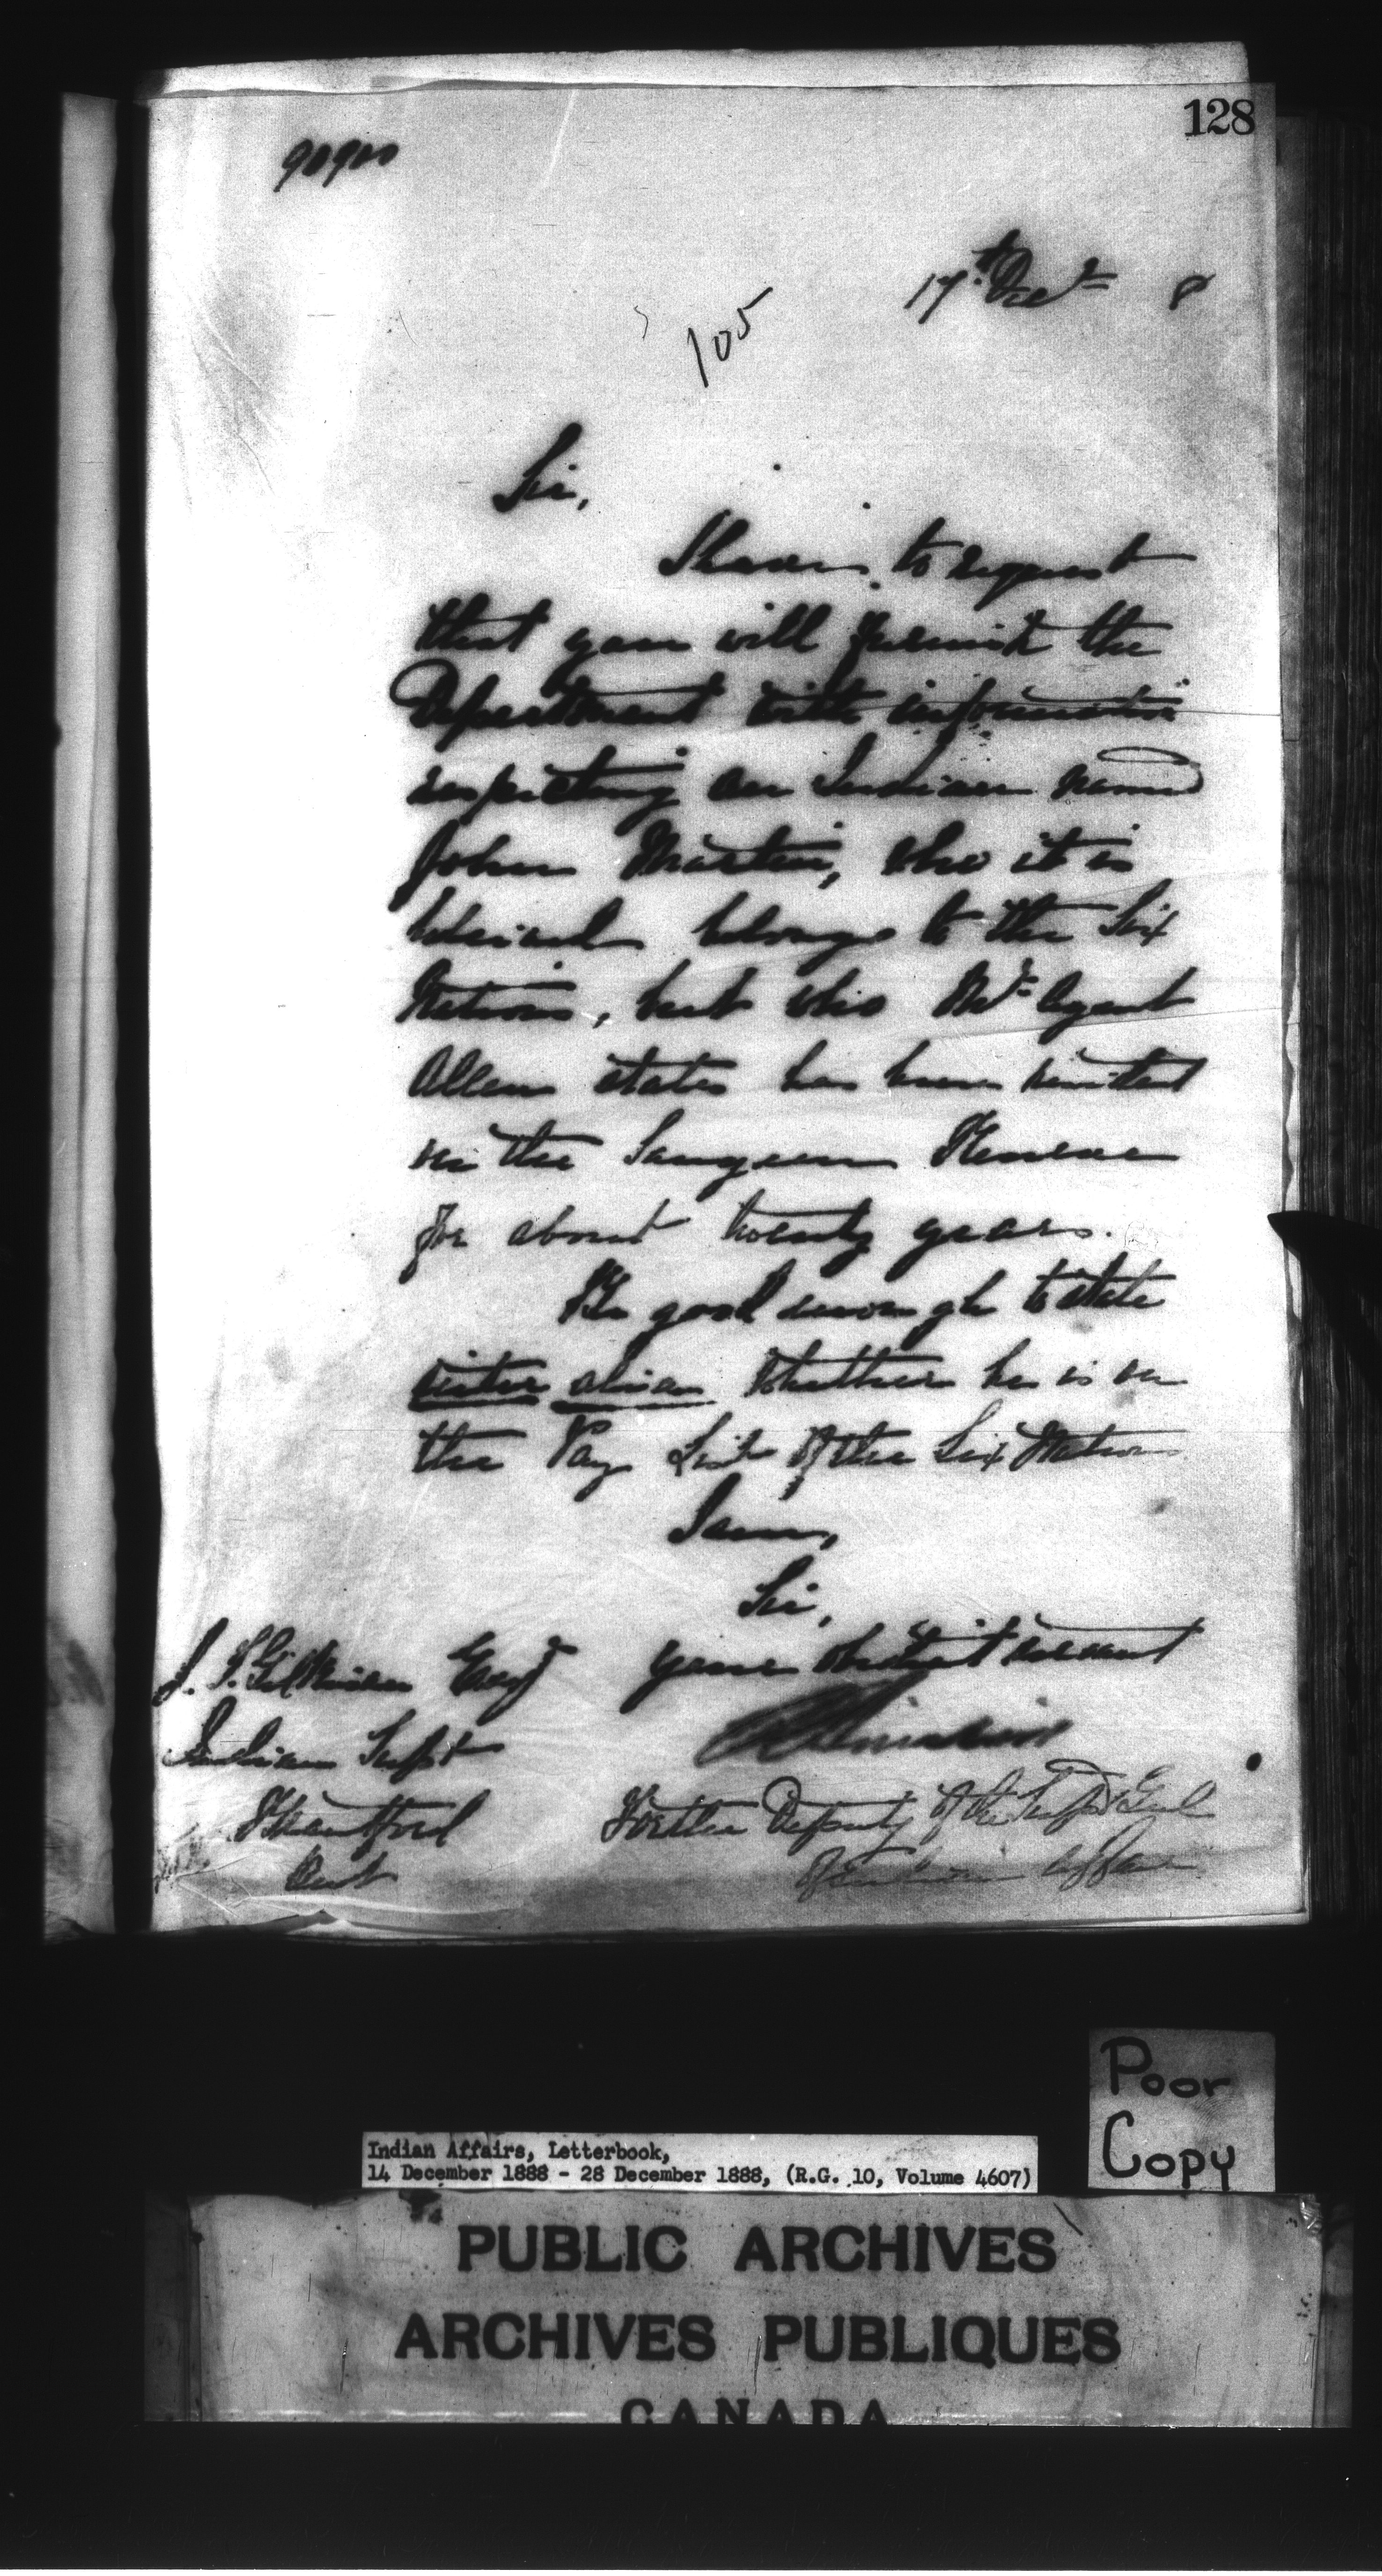 128
90900
17th Decr 8
105
Sir,
I have to request
that you will furnish the
Department with information
respecting an Indian named
John Martin, who it is
believed belongs to the Six
Nations, but who Mr. Agent
Allen states has been resident
on the Saugeen Reserve
for about twenty years.
Be good enough to state
inter alia whether he is on
the Pay List of the Six Nations
I am,
Sir,
Your obedient servant
J. T. Gilkison Esqr
Indian Supt
Brantford
Ont
For the Deputy of the Supt Genl
of Indian Affairs
Poor
Copy
Indian Affairs, Letterbook,
14 December 1888 - 28 December 1888, (R.G. 10, Volume 4607)
PUBLIC ARCHIVES
ARCHIVES PUBLIQUES
CANADA